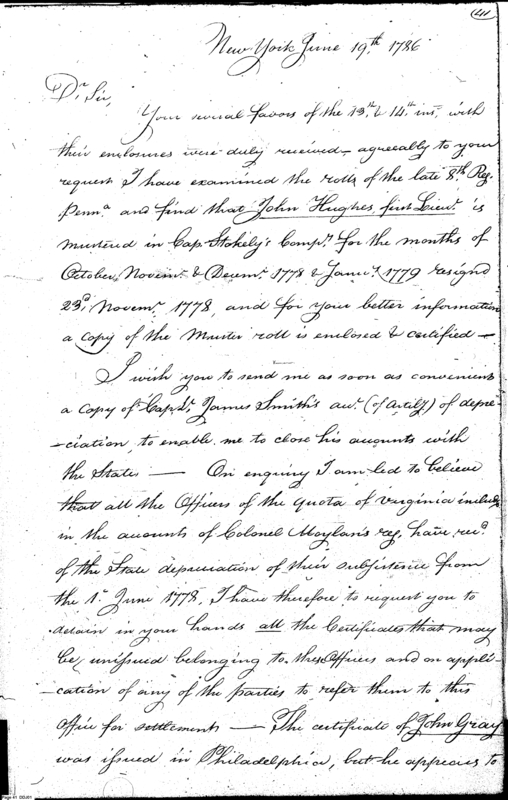 41
New York June 19th. 1786
Dr. Sir,
Your several favors of the 13th & 14th inst. with
their enclosures were duly received - agreeably to your
request I have examined the rolls of the late 8th. Reg.
Penna. and find that John Hughes, first Lieut. is
mustered in Cap. Stokely's Compy. for the months of
October, Novemr. & Decemr. 1778 & Janry. 1779 resignd
23d. Novemr. 1778, and for your better information
a copy of the Muster roll is enclosed & certified —
I wish you to send me as soon as convenient
a copy of Capt. James Smith's acct. (of Artily) of depre-
-ciation, to enable me to close his accounts with
the States — On enquiry I am led to believe
that all the Officers of the quota of Virginia included
in the accounts of Colonel Moylan's reg. have recd.
of the State depreciation of their subsistence from
the 1st June 1778, I have therefore to request you to
detain in your hands all the Certificates that may
be unissued belonging to these Officers and on appli-
-cation of any of the parties to refer them to this
Office for settlement — The certificate of John Gray
was issued in Philadelphia, but he appears to
Page 41